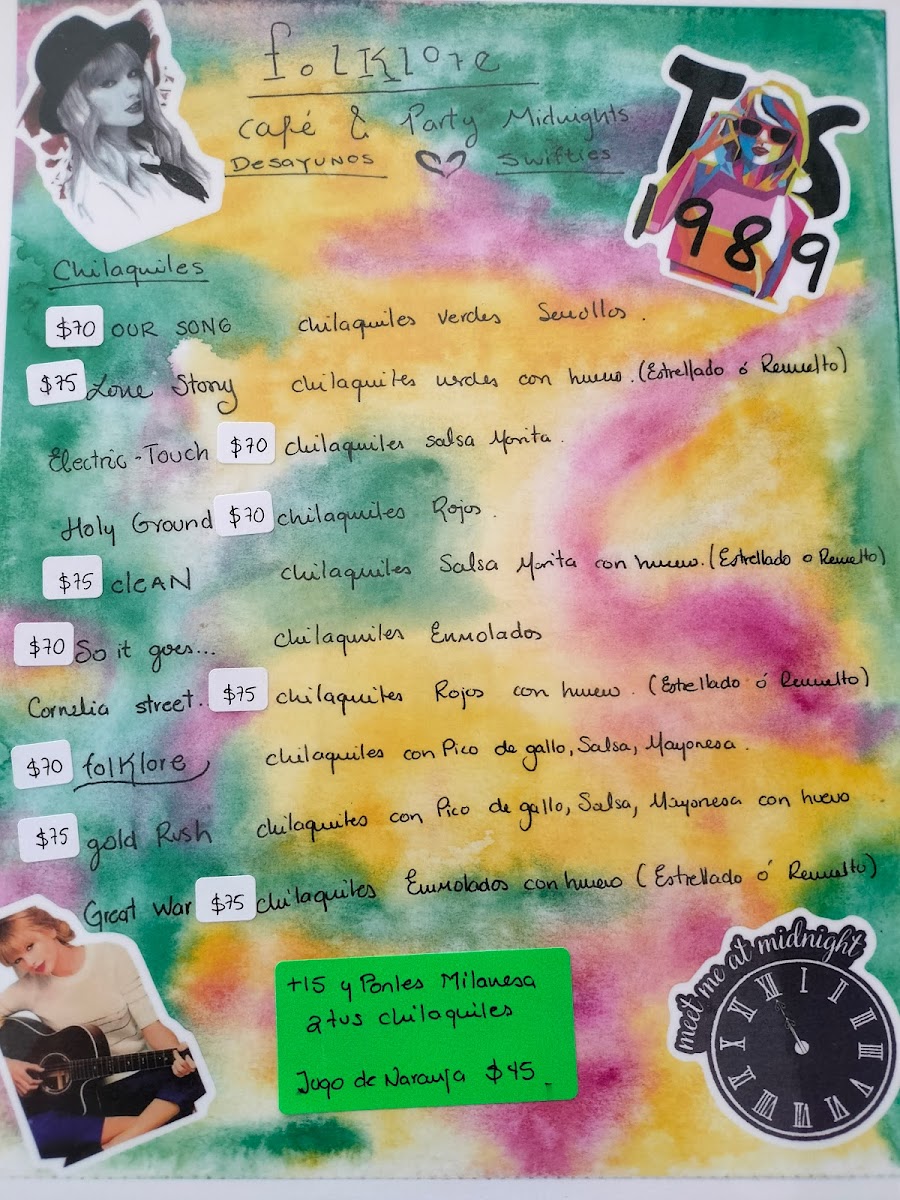 folklore
café & Party Midnights
Desayunos Swifties
TS
1989
Chilaquiles
$70 OUR SONG chilaquiles verdes Sencillos.
$75 Love Story chilaquiles verdes con huevo. (Estrellado ó Revuelto)
Electric-Touch $70 chilaquiles salsa Morita.
Holy Ground $70 chilaquiles Rojos.
$75 cleAN chilaquiles Salsa Morita con huevo. (Estrellado o Revuelto)
$70 So it goes... chilaquiles Enmolados
Cornelia street. $75 chilaquiles Rojos con huevo. (Estrellado ó Revuelto)
$70 folklore chilaquiles con Pico de gallo, Salsa, Mayonesa.
$75 gold Rush chilaquiles con Pico de gallo, Salsa, Mayonesa con huevo
Great War $75 chilaquiles Enmolados con huevo (Estrellado ó Revuelto)
+15 y Ponles Milanesa
a tus chilaquiles
Jugo de Naranja $45
meet me at midnight
XII I II III IIII V VI VII VIII IX X XI